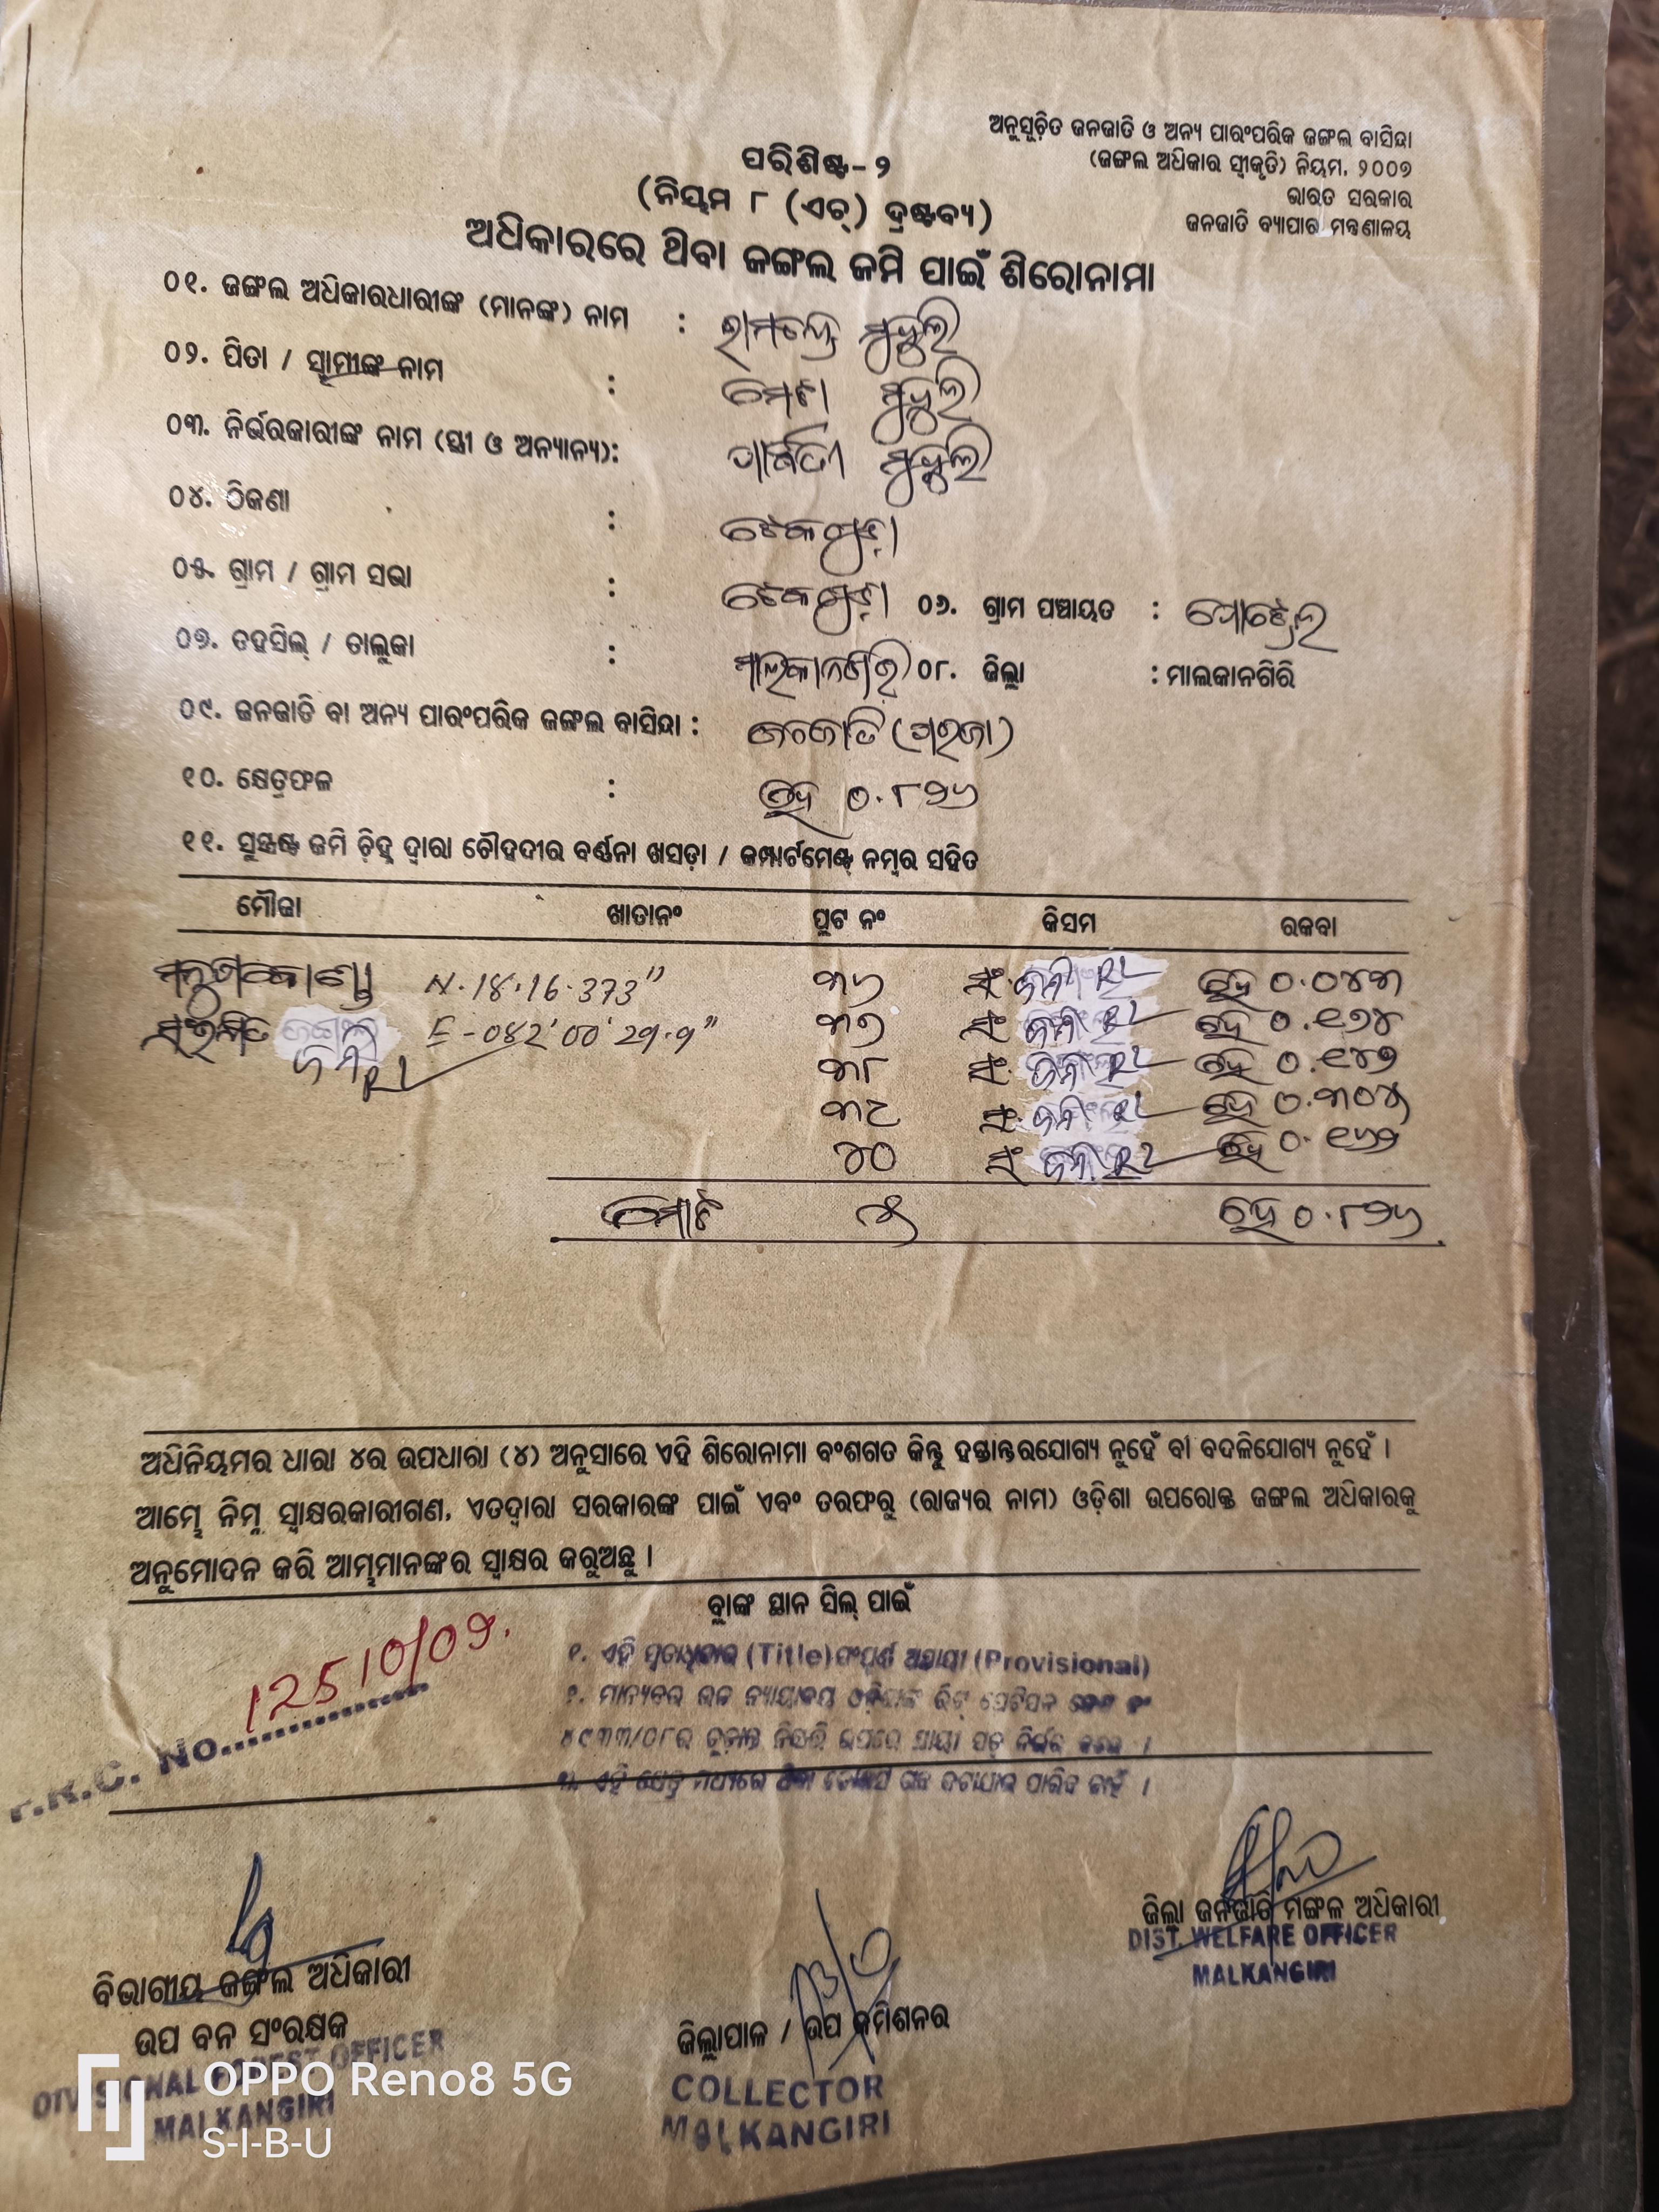 ଅନୁସୂଚିତ ଜନଜାତି ଓ ଅନ୍ୟ ପାରଂପରିକ ଜଙ୍ଗଲ ବାସିନ୍ଦା
(ଜଙ୍ଗଲ ଅଧିକାର ସ୍ୱୀକୃତି) ନିୟମ, ୨୦୦୭
ଭାରତ ସରକାର
ଜନଜାତି ବ୍ୟାପାର ମନ୍ତ୍ରଣାଳୟ
ପରିଶିଷ୍ଟ-୨
(ନିୟମ ୮ (ଏଚ୍) ଦ୍ରଷ୍ଟବ୍ୟ)
ଅଧିକାରରେ ଥିବା ଜଙ୍ଗଲ ଜମି ପାଇଁ ଶିରୋନାମା
୦୧. ଜଙ୍ଗଲ ଅଧିକାରଧାରୀଙ୍କ (ମାନଙ୍କ) ନାମ : ରାମଚନ୍ଦ୍ର ମୁଦୁଲି
୦୨. ପିତା / ସ୍ୱାମୀଙ୍କ ନାମ : ମୁଦୁଲି
୦୩. ନିର୍ଭରକାରୀଙ୍କ ନାମ (ସ୍ତ୍ରୀ ଓ ଅନ୍ୟାନ୍ୟ): ମୁଦୁଲି
୦୪. ଠିକଣା : ଟେକଗୁଡ଼ା
୦୫. ଗ୍ରାମ / ଗ୍ରାମ ସଭା : ଟେକଗୁଡ଼ା ୦୬. ଗ୍ରାମ ପଞ୍ଚାୟତ :
୦୭. ତହସିଲ୍ / ତାଲୁକା : ମାଲକାନଗିରି ୦୮. ଜିଲ୍ଲା : ମାଲକାନଗିରି
୦୯. ଜନଜାତି ବା ଅନ୍ୟ ପାରଂପରିକ ଜଙ୍ଗଲ ବାସିନ୍ଦା : ଜନଜାତି (ପରଜା)
୧୦. କ୍ଷେତ୍ରଫଳ : ହେ ୦.୮୨୬
୧୧. ସୁସ୍ପଷ୍ଟ ଜମି ଚିହ୍ନ ଦ୍ୱାରା ଚୌହଦୀର ବର୍ଣ୍ଣନା ଖସଡ଼ା / କମ୍ପାର୍ଟମେଣ୍ଟ ନମ୍ବର ସହିତ
ମୌଜା ଖାତାନଂ ପ୍ଲଟ ନଂ କିସମ ରକବା
N.18.16.373" ୩୬ ସଂ ଜମି RL ହେ ୦.୦୪୩
ସଂରକ୍ଷିତ E-082'00'29.9" ୩୭ ସଂ ଜମି RL ହେ ୦.୧୭୪
ଜମି RL ୩୮ ସଂ ଜମି RL ହେ ୦.୧୪୭
୩୯ ସଂ ଜମି RL ହେ ୦.୩୦୪
୪୦ ସଂ ଜମି RL ହେ ୦.୧୬୨
ମୋଟ ୫ ହେ ୦.୮୨୬
ଅଧିନିୟମର ଧାରା ୪ର ଉପଧାରା (୪) ଅନୁସାରେ ଏହି ଶିରୋନାମା ବଂଶଗତ କିନ୍ତୁ ହସ୍ତାନ୍ତରଯୋଗ୍ୟ ନୁହେଁ ବା ବଦଳିଯୋଗ୍ୟ ନୁହେଁ ।
ଆମ୍ଭେ ନିମ୍ନ ସ୍ୱାକ୍ଷରକାରୀଗଣ, ଏତଦ୍ୱାରା ସରକାରଙ୍କ ପାଇଁ ଏବଂ ତରଫରୁ (ରାଜ୍ୟର ନାମ) ଓଡ଼ିଶା ଉପରୋକ୍ତ ଜଙ୍ଗଲ ଅଧିକାରକୁ
ଅନୁମୋଦନ କରି ଆମ୍ଭମାନଙ୍କର ସ୍ୱାକ୍ଷର କରୁଅଛୁ ।
ବ୍ଲାଙ୍କ ସ୍ଥାନ ସିଲ୍ ପାଇଁ
୧. ଏହି (Title) ସଂପୂର୍ଣ୍ଣ ଅସ୍ଥାୟୀ (Provisional)
୨. ମାନ୍ୟବର ଉଚ୍ଚ ନ୍ୟାୟାଳୟ ଓଡ଼ିଶାଙ୍କ ରିଟ୍ ପେଟିସନ କେସ ନଂ
୪୯୩୩/୦୮ର ଚୂଡ଼ାନ୍ତ ନିଷ୍ପତ୍ତି ଉପରେ ସ୍ଥାୟୀ ସତ୍ତ୍ୱ ନିର୍ଭର କରେ ।
୩. ଏହି କ୍ଷେତ୍ର ମଧ୍ୟରେ ଥିବା
F.R.C. No. 12510/09.
ଜିଲ୍ଲା ଜନଜାତି ମଙ୍ଗଳ ଅଧିକାରୀ
DIST. WELFARE OFFICER
MALKANGIRI
ବିଭାଗୀୟ ଜଙ୍ଗଲ ଅଧିକାରୀ
ଉପ ବନ ସଂରକ୍ଷକ
DIVISIONAL FOREST OFFICER
MALKANGIRI
ଜିଲ୍ଲାପାଳ / ଉପ କମିଶନର
COLLECTOR
MALKANGIRI
OPPO Reno8 5G
S-I-B-U